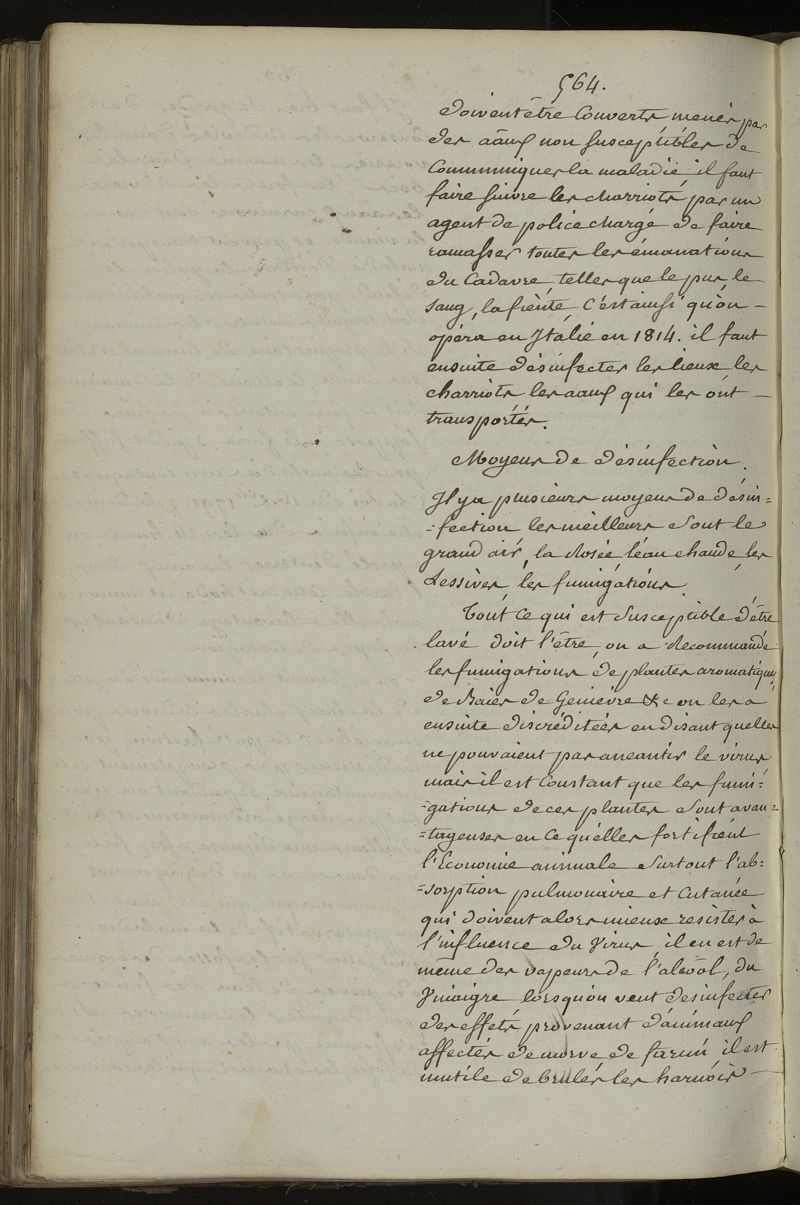 564.
doivent être Couverts menés par
des aâux non susceptibles de
Communiquer la maladie, il faut
faire suivre les charriots, par un
agent de police chargé de faire
ramasser toutes les émanations
du Cadavre, telles que le pus, le
sang, la fiente, C'est ainsi qu'on –
opéra en Italie en 1814. il faut
ensuite désinfecter les lieux, les
charriots les aaux qui les ont –
transportés.
Moyens de désinfection.
Il y a plusieurs moyens de désin=
=fection les meilleurs sont le
grand air, la Rosée l'eau chaude, les
Lessives, les fumigations.
Tout ce qui est susceptible d'être
lavé doit l'être, on a Recommandé
les fumigations de plantes aromatiques,
de Baies de Genièvre &c on les a
ensuite discréditées en disant quelles
ne pouvaient pas aneantir le virus,
mais il est Constant que les fumi=
=gations de ces plantes sont avan=
=tageuses en ce qu'elles fortifient
l'Economie animale surtout l'ab=
=sorption pulmonaire et Cutanée
qui doivent alors mieux resister à
l'influence du Virus, il en est de
même des vapeurs de l'alcool, du
Vinaigre lorsqu'on veut desinfecter
des effets provenant d'animaux
affectés de morve de farcin, il est
inutile de brulés les harnois –